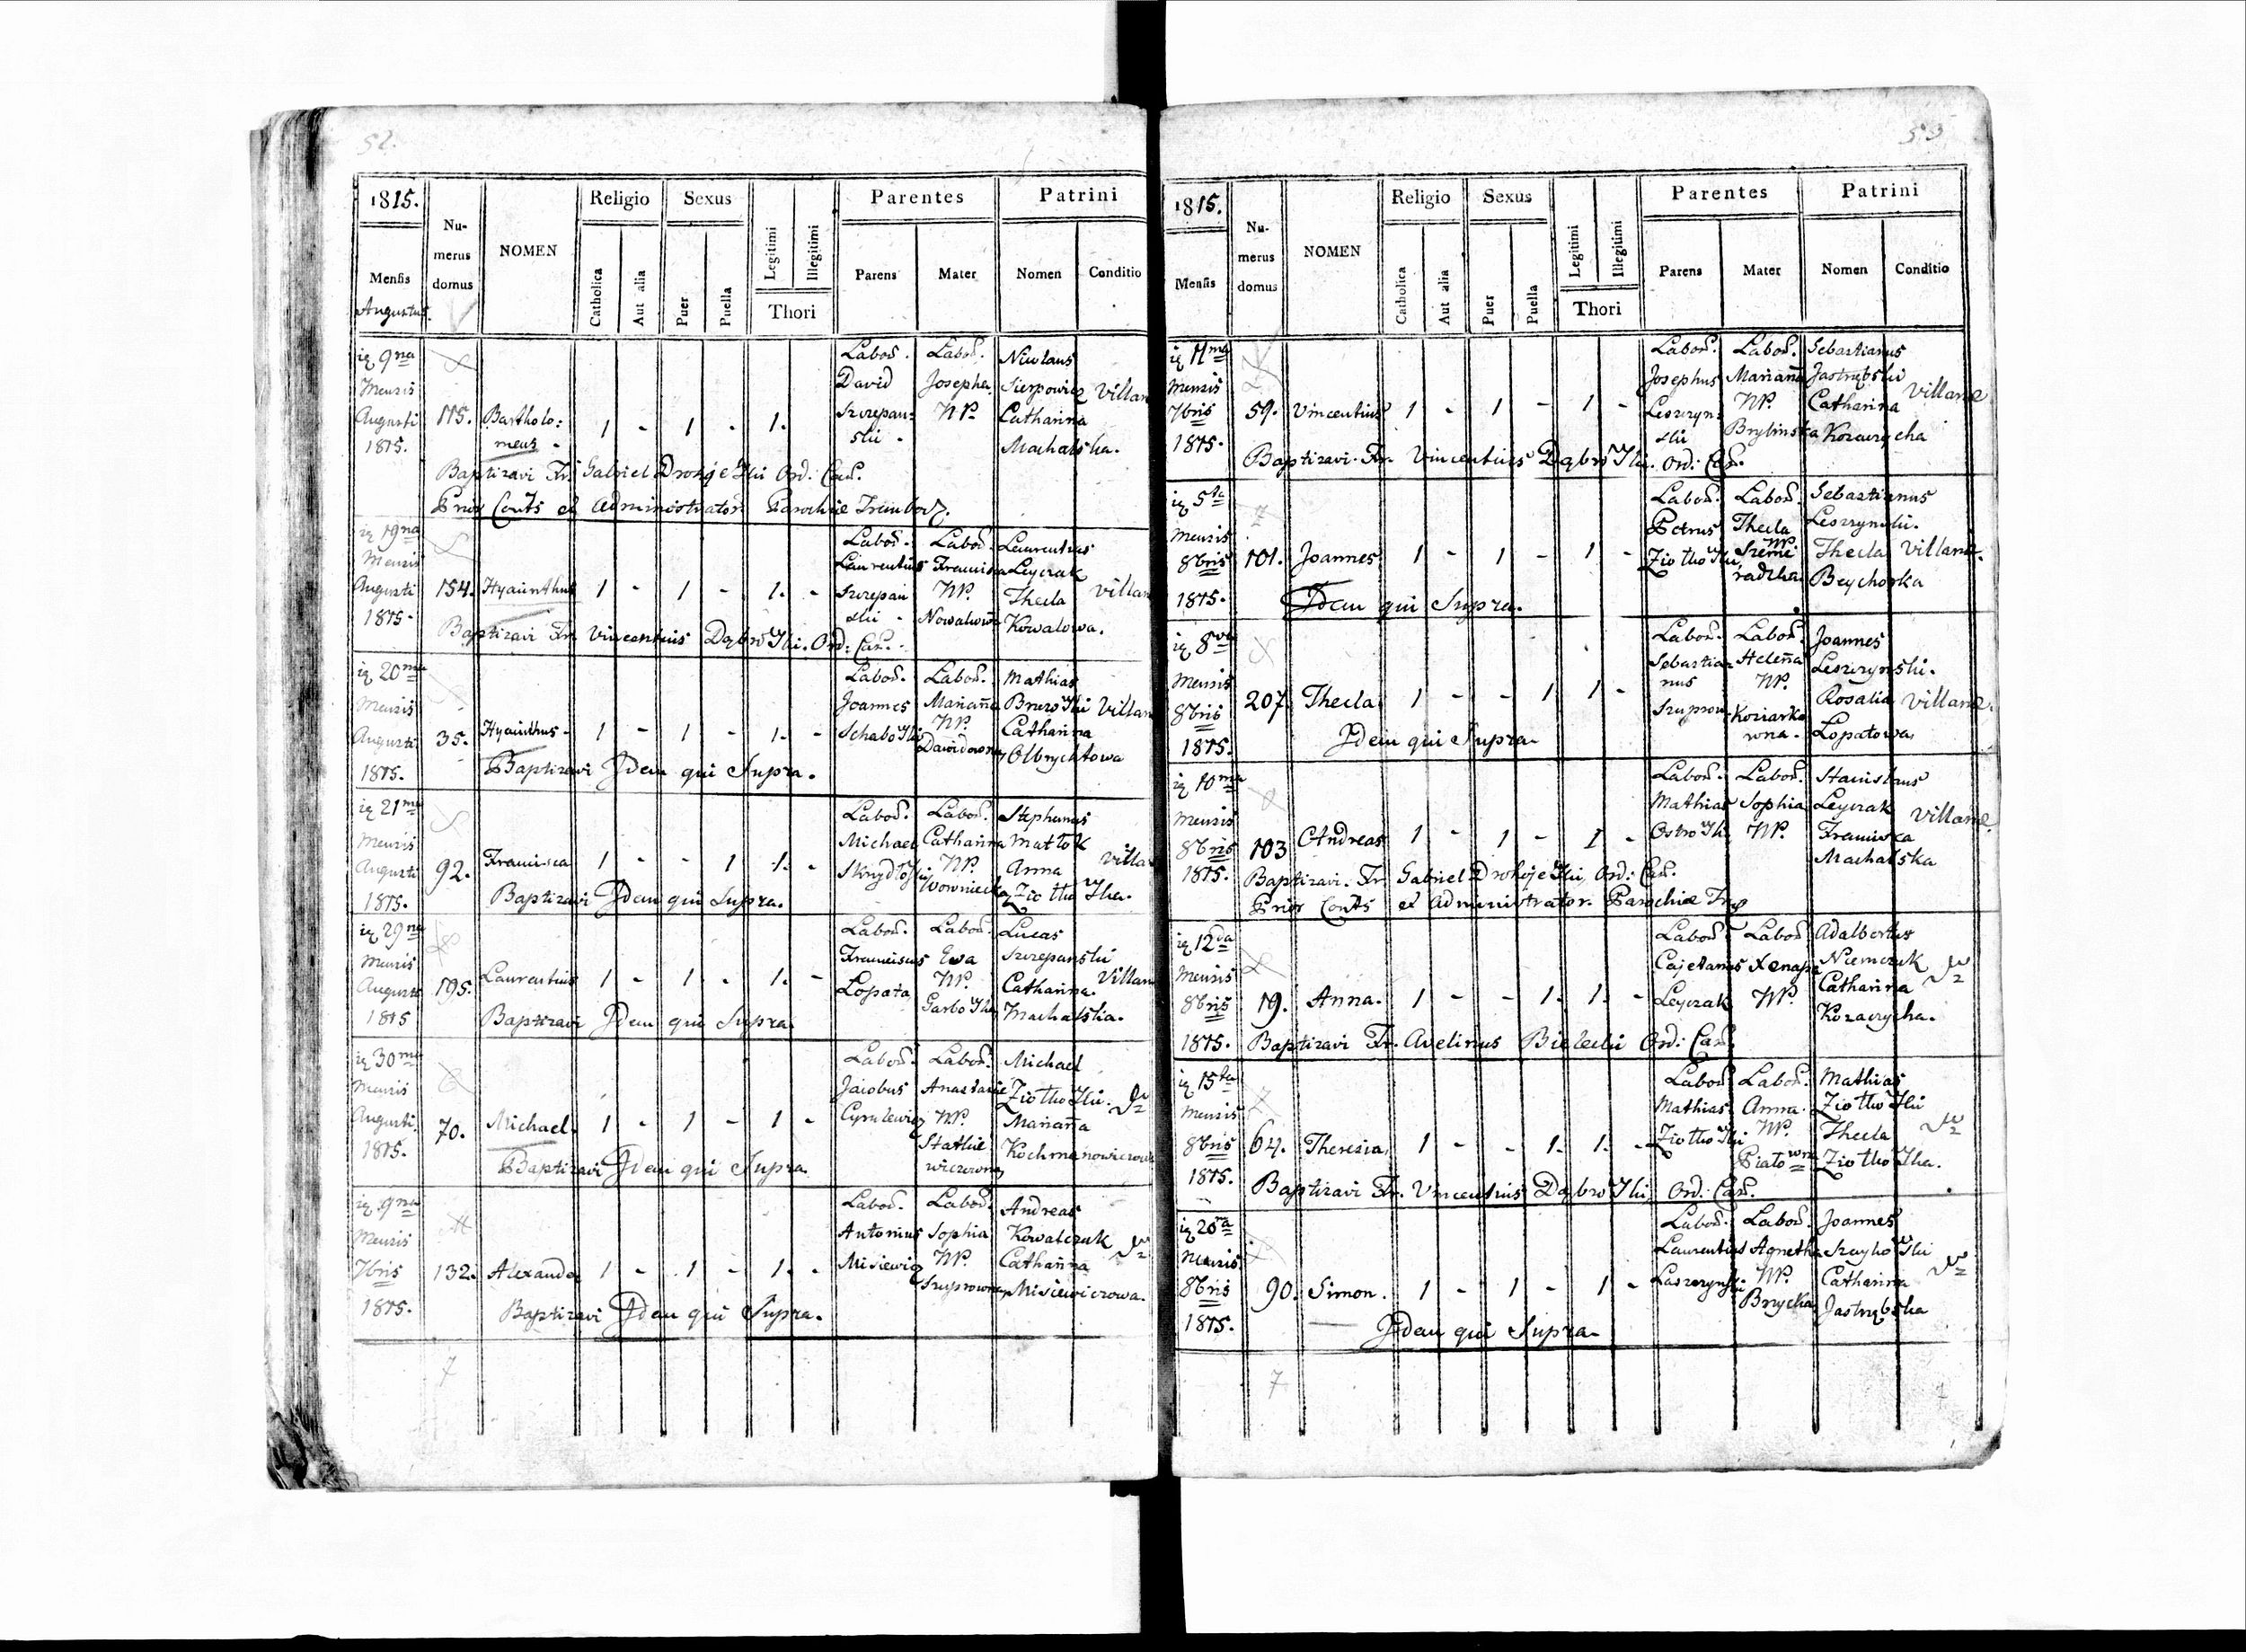 52.
1815.
Nu-
merus
domus
NOMEN
Religio
Sexus
Legitimi
Illegitimi
Thori
Parentes
Patrini
Mensis
Augustus.
Catholica
Aut alia
Puer
Puella
Parens
Mater
Nomen
Conditio
9na Mensis Augusti 1815.
115.
Bartholo:
meus -
1 - 1 - 1.
Labor.
David
Szczepan:
ski -
Labor.
Josepha
NP.
Nicolaus
Sierpowicz
Catharina
Machalska.
Villan
Baptizavi Fr. Gabriel Drohojeski Ord: Car.
Prior Conts et Administrator Parochiæ Trembov.
19na Mensis Augusti 1815.
154.
Hyacinthus
1 - 1 - 1. -
Labor.
Laurentius
Szczepan
ski -
Labor.
Francisca
NP.
Laurentius
Leyczak
Thecla
Kowalowa.
villan
Baptizavi Fr. Vincentius Dąbrowski. Ord: Car.
20ma Mensis Augusti 1815.
35.
Hyacinthus -
1 - 1 - 1. -
Labor.
Joannes
Labor.
Marianna
NP.
Dawidowna
Mathias
Catharina
Olbrychtowa
Villan
Baptizavi Idem qui Supra.
21ma Mensis Augusti 1815.
92.
Francisca
1 - - 1 1. -
Labor.
Michael
Labor.
Catharina
NP.
Stephanus
Matłok
Anna
Ziołkowska.
villa
Baptizavi Idem qui Supra.
29na Mensis Augusti 1815
195.
Laurentius
1 - 1 - 1. -
Labor.
Franciscus
Łopata
Labor.
Ewa
NP.
Garbowska
Lucas
Szczepanski
Catharina
Machalska.
Villan
Baptizavi Idem qui Supra
30ma Mensis Augusti. 1815.
70.
Michael.
1 - 1 - 1 -
Labor.
Jacobus
Cyrulewicz
Labor.
Anastasia
NP.
Statkie
wiczowna
Michael
Ziołkowski.
Marianna
Baptizavi Idem qui Supra
9na Mensis 7bris 1815.
132.
Alexander
1 - 1 - 1. -
Labor.
Antonius
Misiewicz
Labor.
Sophia
NP.
Szuprowna
Andreas
Kowalczuk
Catharina
Misiewiczowa.
Baptizavi Idem qui Supra.
7
53
1815.
Nu-
merus
domus
NOMEN
Religio
Sexus
Legitimi
Illegitimi
Thori
Parentes
Patrini
Mensis
Catholica
Aut alia
Puer
Puella
Parens
Mater
Nomen
Conditio
11ma Mensis 7bris 1815.
59.
Vincentius
1 - 1 - 1 -
Labor.
Josephus
Leszczyn:
ski
Labor.
Marianna
NP.
Brylinska
Sebastianus
Jastrzębski
Catharina
Kozaczycha
Villanæ
Baptizavi. Fr. Vincentius Dąbrowski. Ord: Car.
5ta Mensis 8bris 1815.
101.
Joannes
1 - 1 - 1 -
Labor.
Petrus
Ziołkowski
Labor.
Thecla
NP.
Sebastianus
Leszczynski.
Thecla
Villanæ.
Idem qui Supra.
8va Mensis 8bris 1815.
207.
Thecla
1 - - 1 1 -
Labor.
Sebastia-
nus
Labor.
Helena
NP.
Koziarko
wna.
Joannes
Leszczynski.
Rosalia
Łopatowa
Villanæ.
Idem qui Supra
10ma Mensis 8bris 1815.
103
Andreas
1 - 1 - 1 -
Labor.
Mathias
Ostrowski
Labor.
Sophia
NP.
Stanislaus
Leyczak
Francisca
Machalska
Villanæ.
Baptizavi. Fr. Gabriel Drohojeski, Ord: Car.
Prior Conts et Administrator Parochiæ
12da Mensis 8bris 1815.
19.
Anna.
1 - - 1. 1. -
Labor.
Cajetanus
Leyczak
Labor.
NP.
Adalbertus
Niemczuk
Catharina
Kozaczycha.
Baptizavi Fr. Avelinus Bielecki Ord: Car.
15ta Mensis 8bris 1815.
64.
Theresia
1 - - 1. 1. -
Labor.
Mathias
Ziołkowski
Labor.
Anna.
NP.
Piatowna
Mathias
Ziołkowski
Thecla
Ziołkowska.
Baptizavi Fr. Vincentius Dąbrowski Ord: Car.
20ma Mensis 8bris 1815.
90.
Simon.
1 - 1 - 1 -
Labor.
Laurentius
Labor.
Agnetha
NP.
Brycka
Joannes
Catharina
Jastrzębska
Idem qui Supra.
7